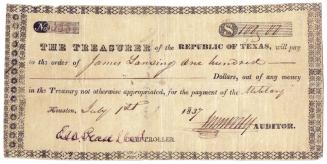 No
$ 100,00
THE TREASURER of the REPUBLIC OF TEXAS, will pay
to the order of James Lansing One hundred
Dollars, out of any money
in the Treasury not otherwise appropriated, for the payment of the Military
Houston, July 1st 1837
COMPTROLLER. AUDITOR.